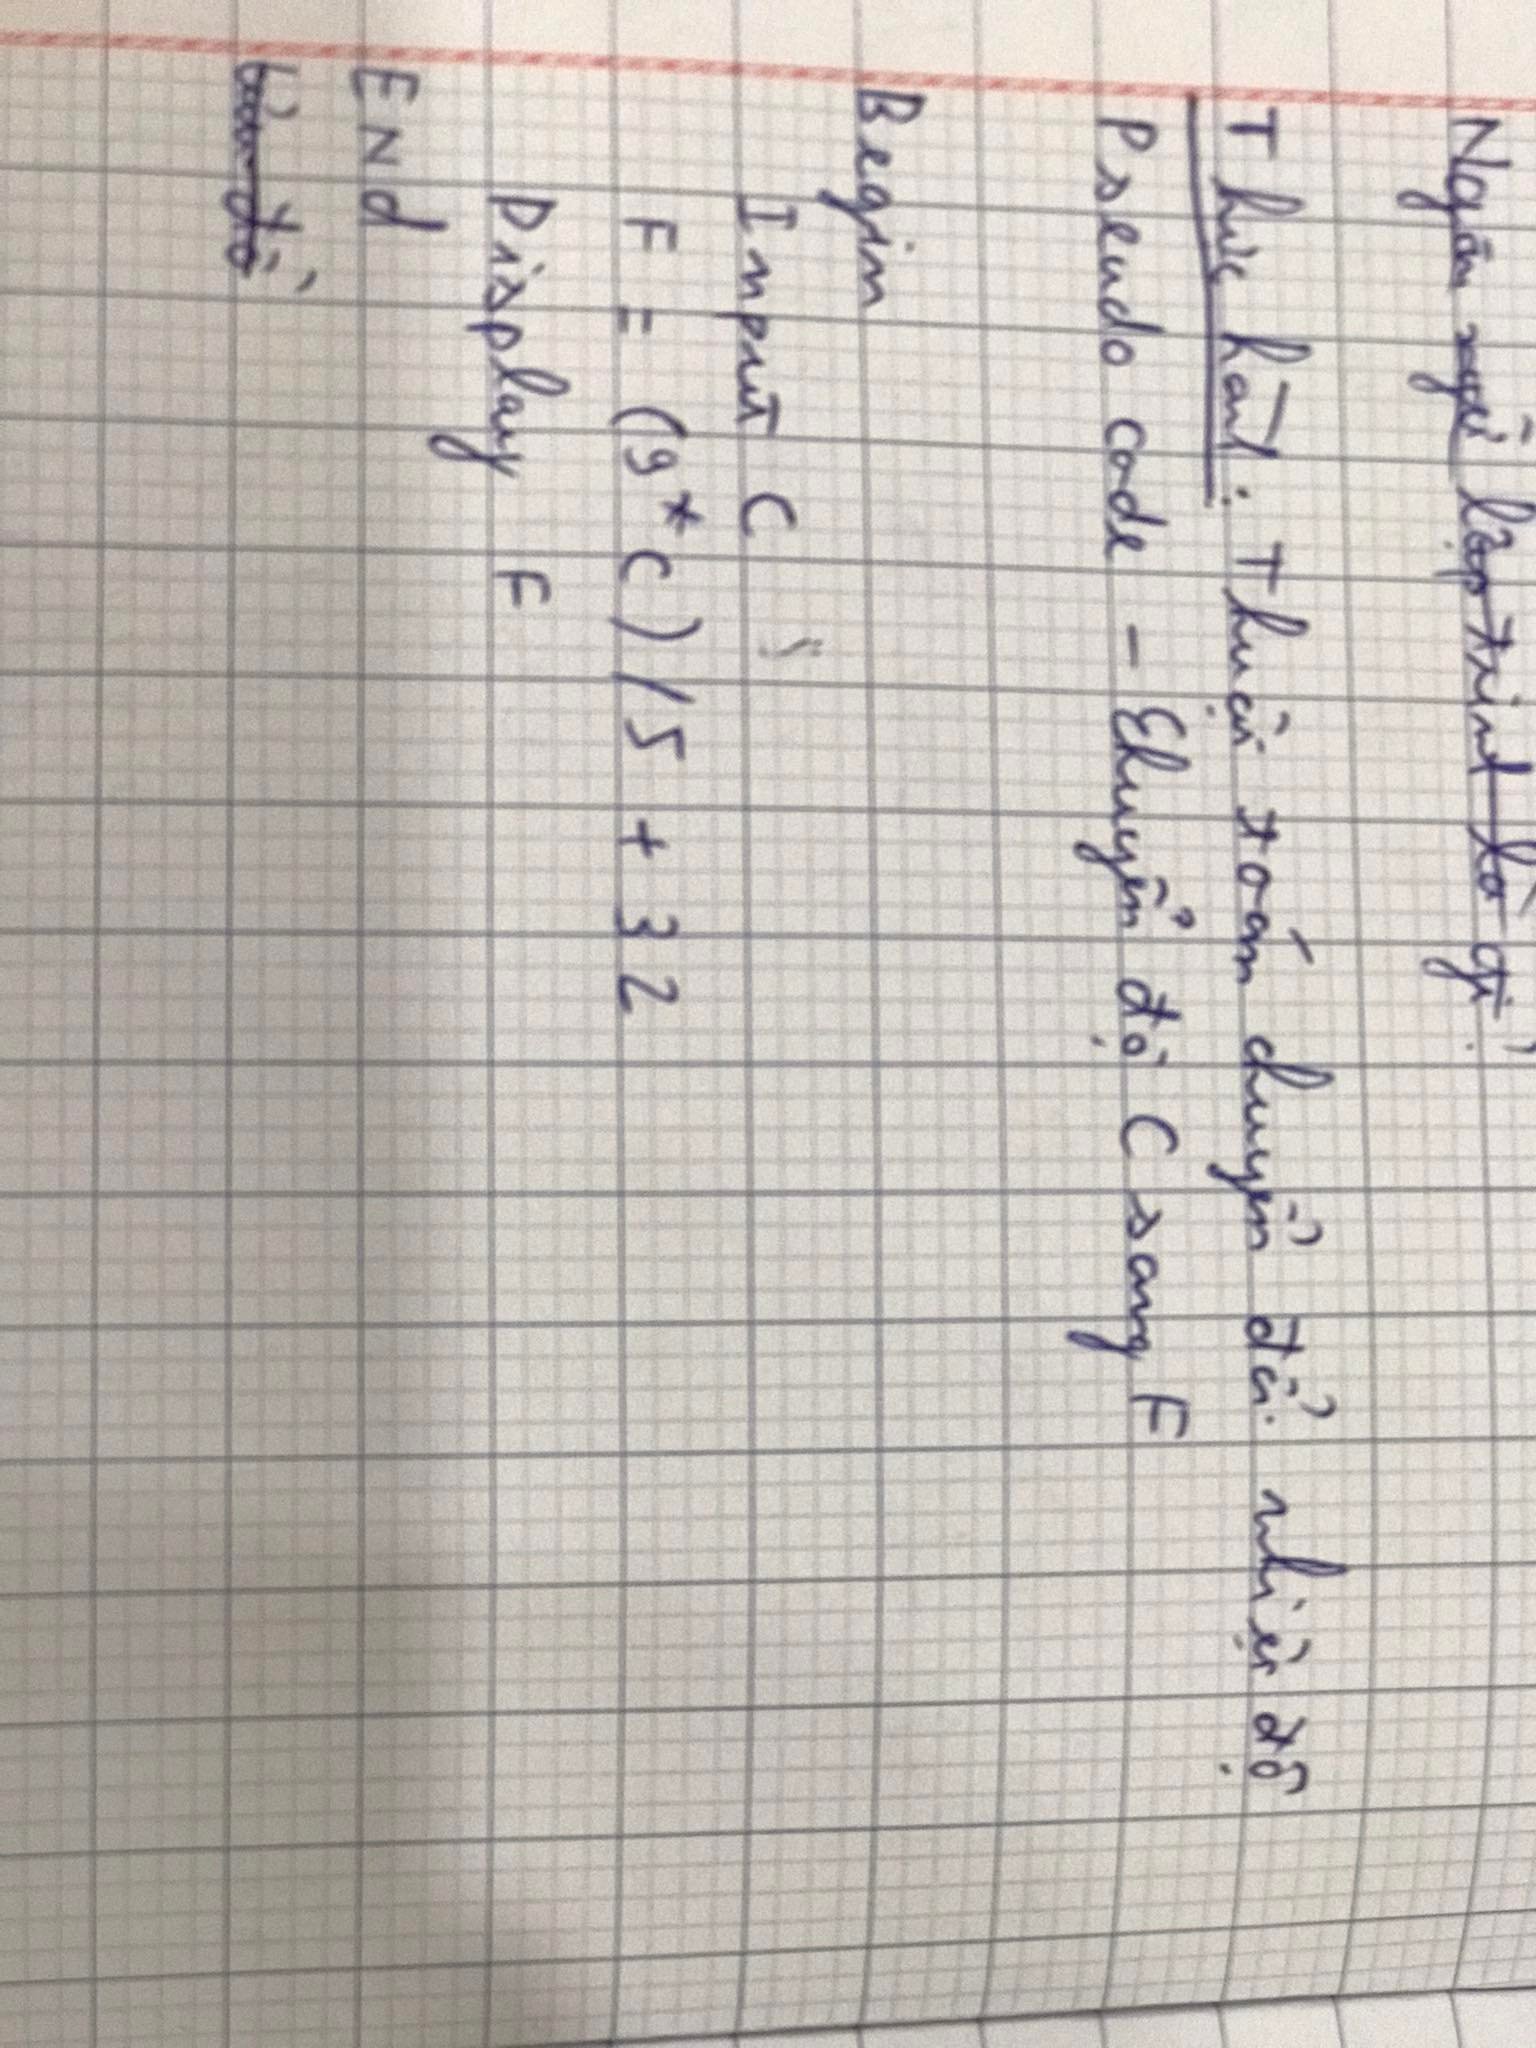 Ngôn ngữ lập trình là gì?
Thực hành: Thuật toán chuyển đổi nhiệt độ
Pseudo code - Chuyển độ C sang F
Begin
Input C
F = (9*C)/5 + 32
Display F
End